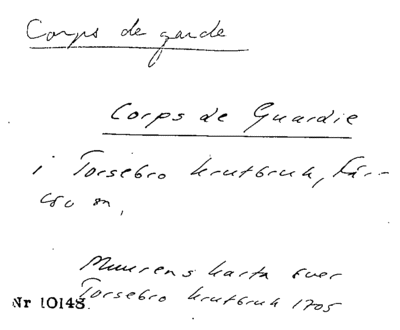 Corps de garde
Corps de Guardie
i Torsebro krutbruk, Fär-
m,
Munrens karta över
Torsebro krutbruk 1705
Nr 10148.